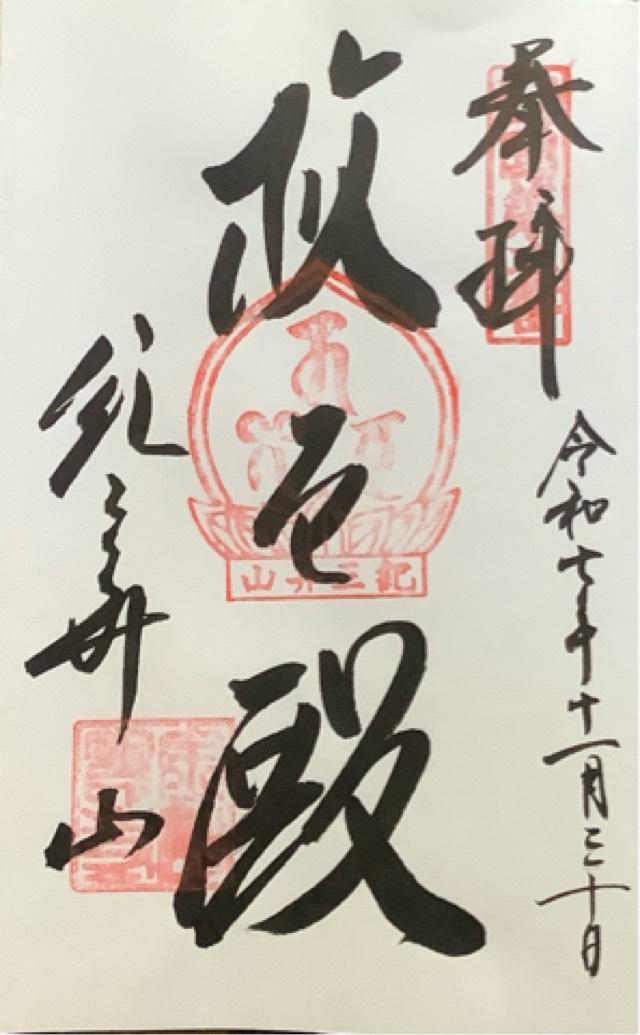 奉拝
令和七年十一月三十日
救世殿
紀三井山
紀三井山